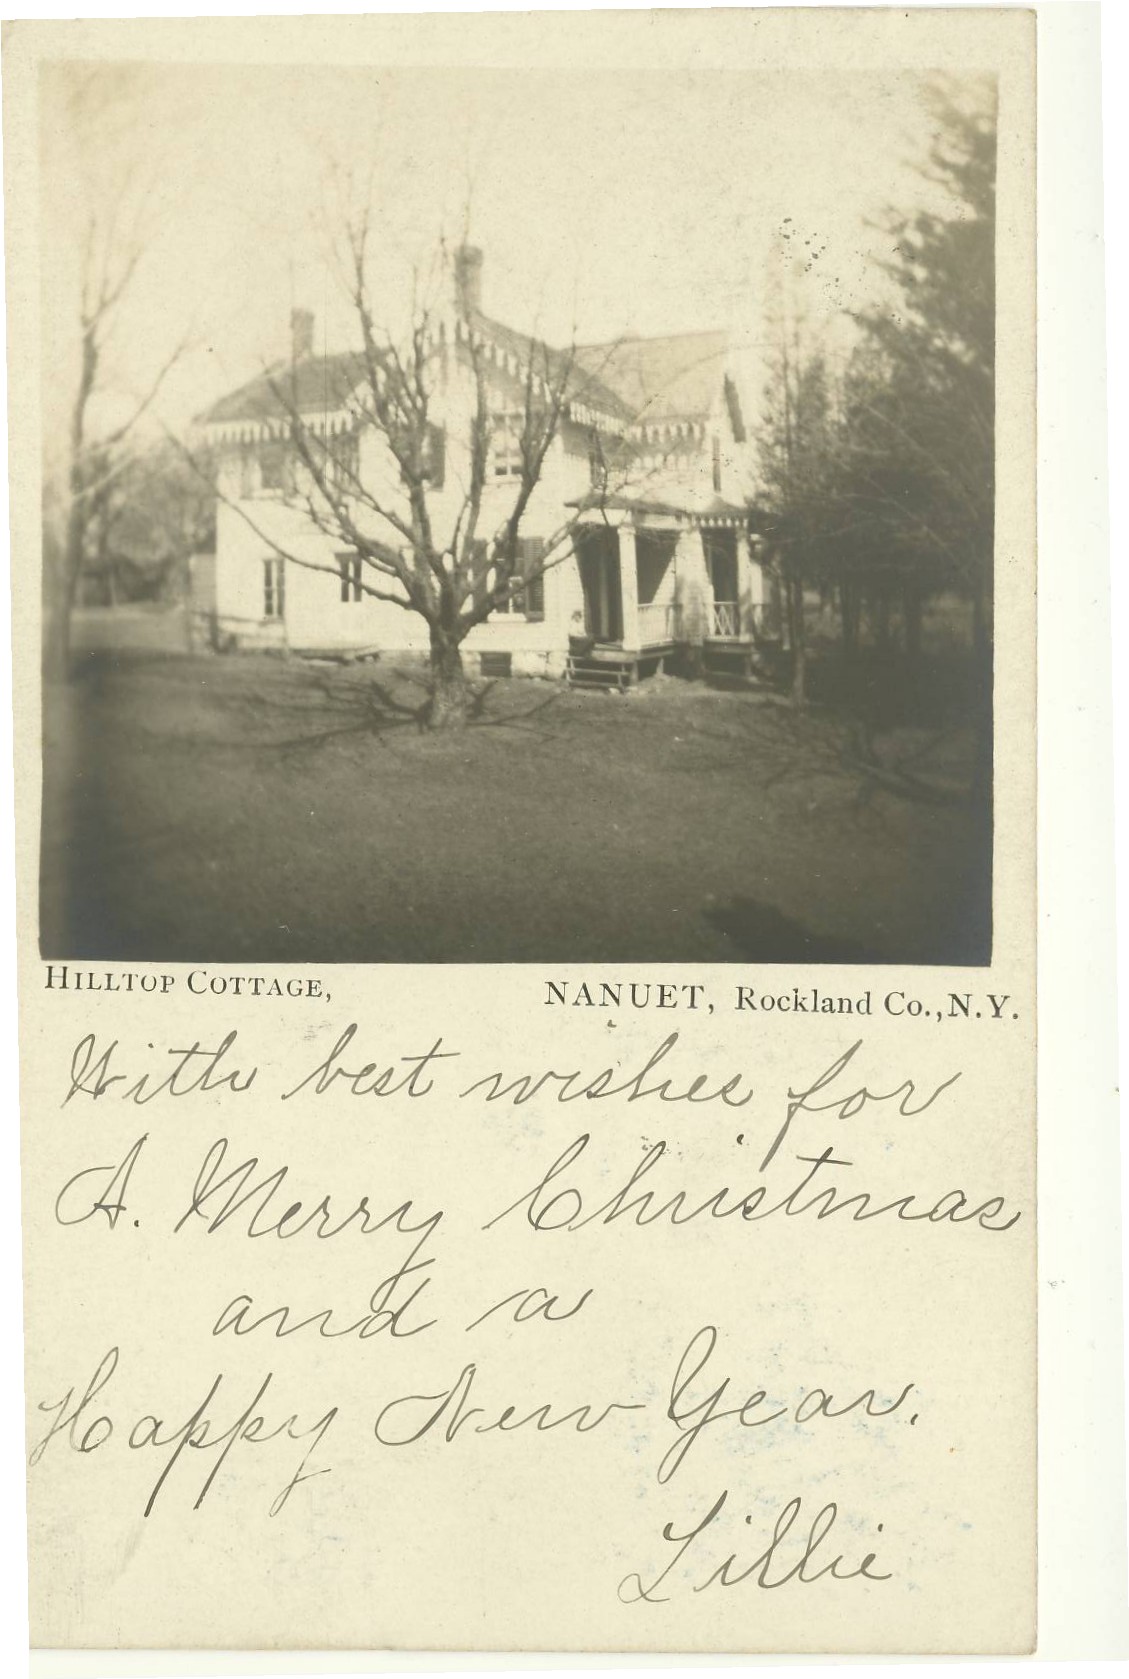 HILLTOP COTTAGE, NANUET, Rockland Co., N.Y.
With best wishes for
A. Merry Christmas
and a
Happy New Year.
Lillie